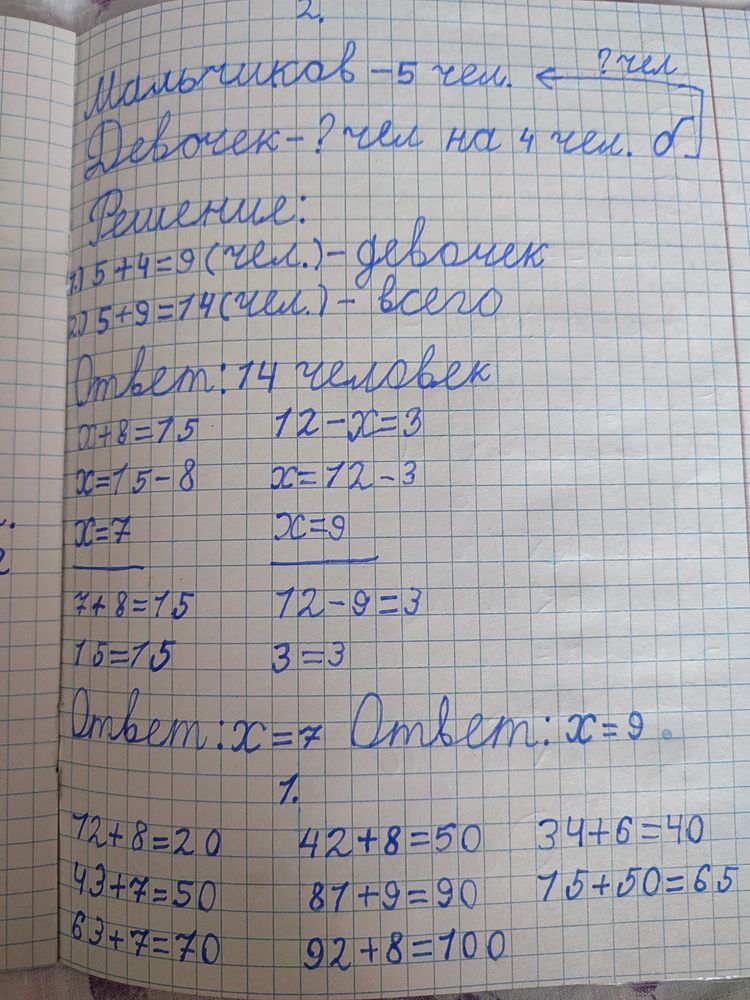 2.
Мальчиков – 5 чел. ? чел
Девочек – ? чел на 4 чел. б
Решение:
1.) 5+4=9 (чел.) – девочек
2.) 5+9=14 (чел.) – всего
Ответ: 14 человек
х+8=15 12–х=3
х=15–8 х=12–3
х=7 х=9
7+8=15 12–9=3
15=15 3=3
Ответ: х=7 Ответ: х=9.
1.
12+8=20 42+8=50 34+6=40
43+7=50 81+9=90 15+50=65
63+7=70 92+8=100